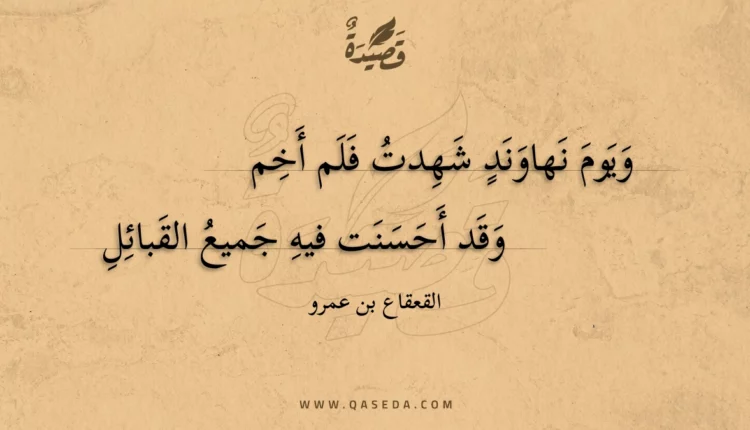 قَصِيدَةٌ
وَيَومَ نَهاوَندٍ شَهِدتُ فَلَم أَخِم
وَقَد أَحَسَنَت فيهِ جَميعُ القَبائِلِ
القعقاع بن عمرو
WWW.QASEDA.COM